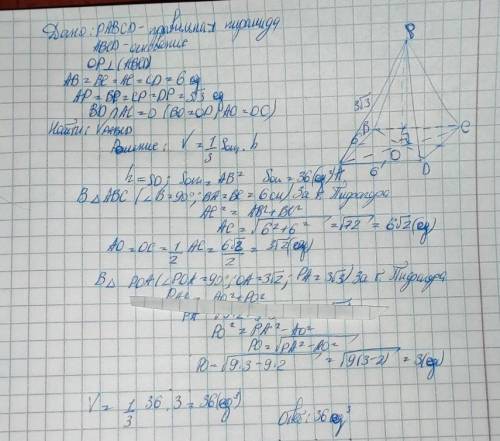 Дано: PABCD - правильная пирамида
ABCD - основание
OP⊥(ABCD)
AB = BC = AC = CD = 6 ед
AP = BP = CP = DP = 3√3 ед
BD ∩ AC = O (BO = OD, AO = OC)
Найти: V PABCD
Решение: V = 1/3 Sосн · h
h = SO; Sосн = AB² Sосн = 36(ед²)
В △ ABC (∠B = 90°; BA = BC = 6 см) За т. Пифагора
AC² = AB² + BC²
AC = √6² + 6² = √72 = 6√2 (ед)
AO = OC = 1/2 AC = 6√2/2 = 3√2 (ед)
В △ POA (∠POA = 90°; OA = 3√2; PA = 3√3) За т. Пифагора
AO² + PO²
PA
PO² = PA² - AO²
PO = √PA² - AO²
PO = √9·3 - 9·2 = √9(3-2) = 3 (ед)
V = 1/3 36 · 3 = 36 (ед³)
Ответ: 36 ед³
P
3√3
B
C
6
A
O
6
D